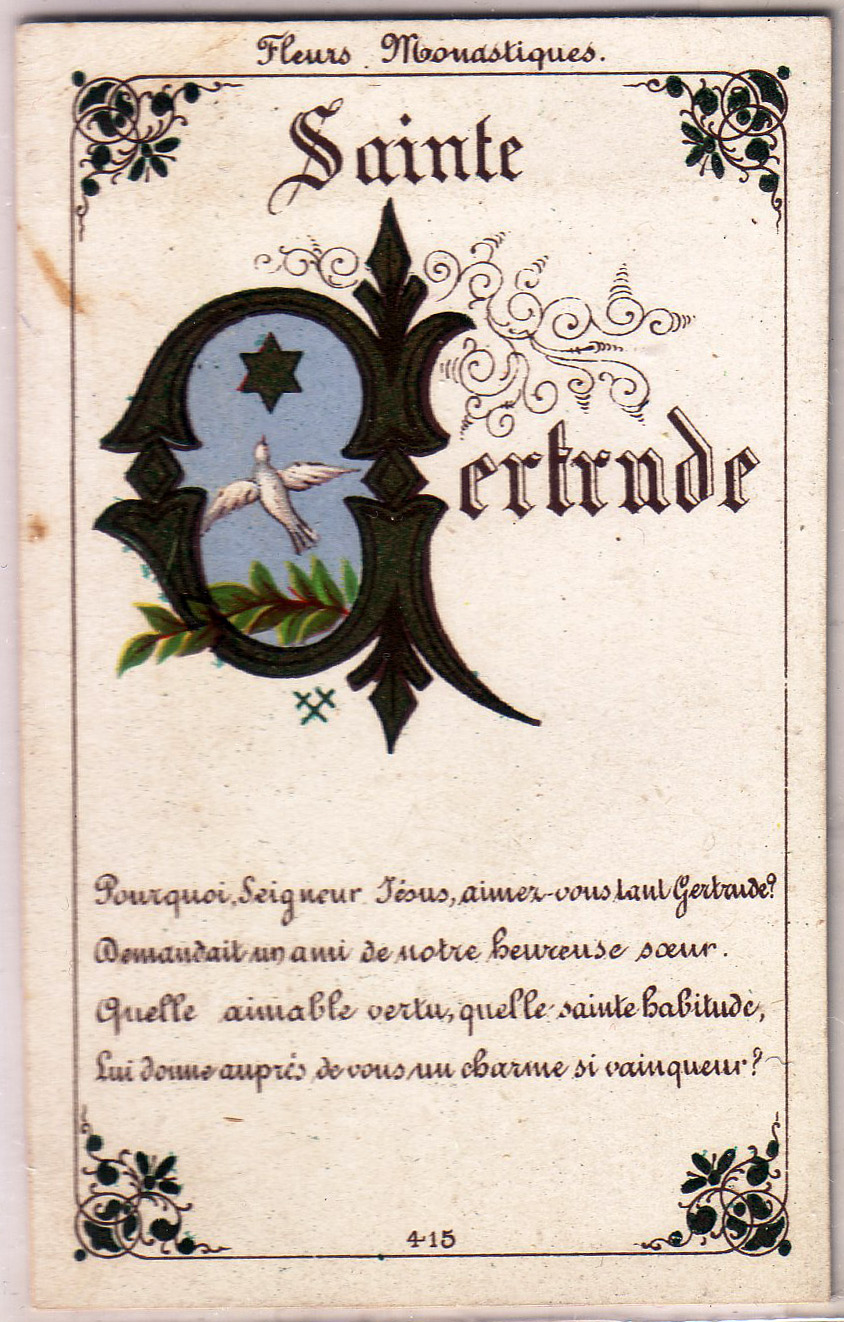 Fleurs Monastiques.
Sainte
Gertrude
Pourquoi, Seigneur Jésus, aimez-vous tant Gertrude?
Demandait un ami de notre heureuse sœur.
Quelle aimable vertu, quelle sainte habitude,
Lui donne auprés de vous un charme si vainqueur?
415